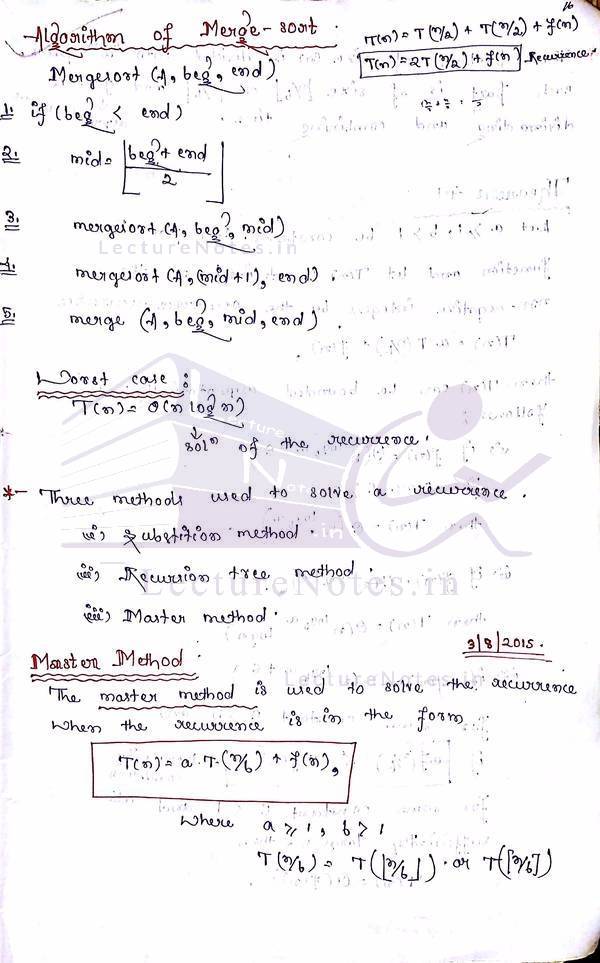 16
Algorithm of Merge-sort.
T(n) = T(n/2) + T(n/2) + f(n)
T(n) = 2T(n/2) + f(n) Recurrence.
Mergesort (A, beg, end)
1. if (beg < end)
2. mid = ⌊beg + end / 2⌋
3. mergesort (A, beg, mid)
LectureNotes.in
4. mergesort (A, (mid + 1), end).
5. merge (A, beg, mid, end).
Worst case:
T(n) = θ(n log n)
↓
solⁿ of the recurrence.
*- Three methods used to solve a recurrence.
(i) Substition method.
(ii) Recursion tree method.
LectureNotes.in
(iii) Master method.
3/8/2015.
Master Method:
LectureNotes.in
The master method is used to solve the recurrence
when the recurrence is in the form
T(n) = a.T(n/b) + f(n),
where a ≥ 1, b > 1
T(n/b) = T(⌊n/b⌋) or T(⌈n/b⌉)